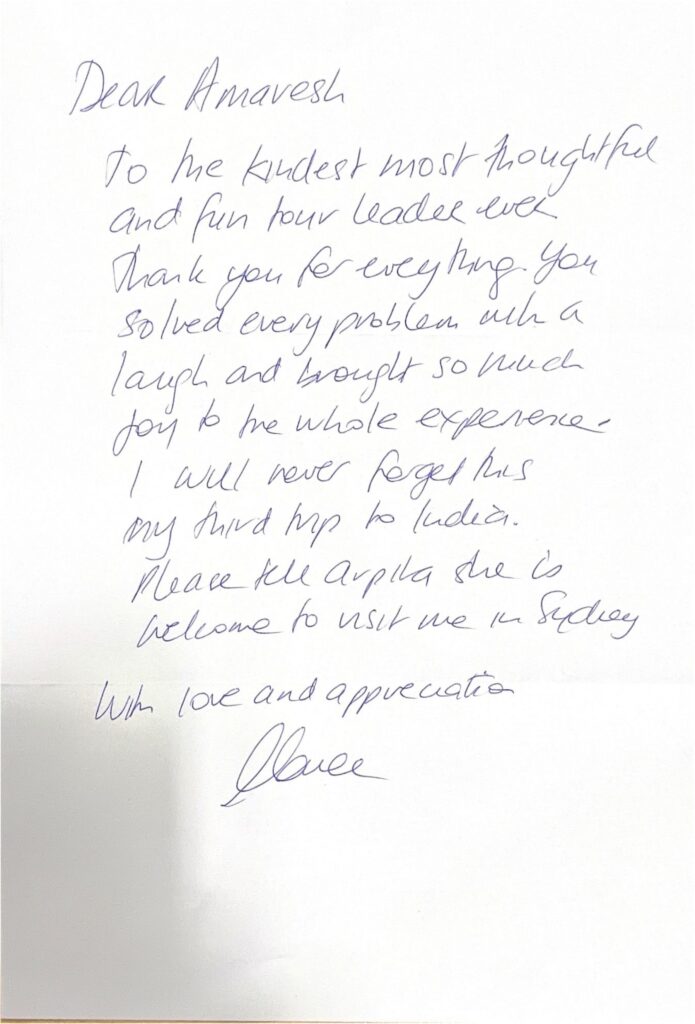 Dear Amaresh
To the kindest most thoughtful
and fun tour leader ever
Thank you for everything. You
solved every problem with a
laugh and brought so much
joy to the whole experience.
I will never forget this
my third trip to India.
Please tell Arpita she is
welcome to visit me in Sydney
With love and appreciation